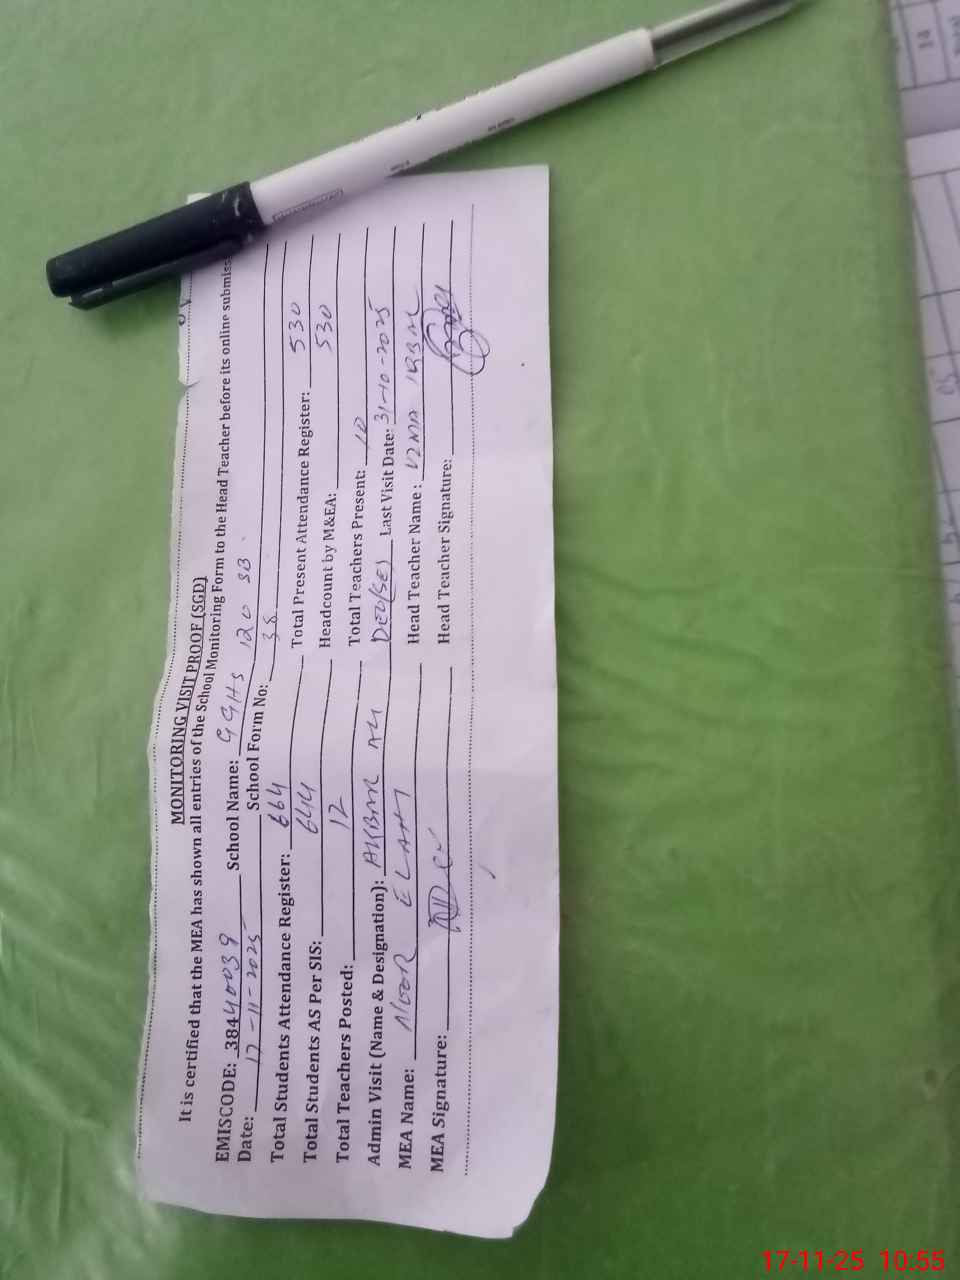 MONITORING VISIT PROOF (SGD)
It is certified that the MEA has shown all entries of the School Monitoring Form to the Head Teacher before its online submiss
EMISCODE: 38440039 School Name: GGHS 120 SB
Date: 17-11-2025 School Form No: 38
Total Students Attendance Register: 664 Total Present Attendance Register: 530
Total Students AS Per SIS: 644 Headcount by M&EA: 530
Total Teachers Posted: 12 Total Teachers Present: 10
Admin Visit (Name & Designation): AKBAR ALI DEO(SE) Last Visit Date: 31-10-2025
MEA Name: ELAHI Head Teacher Name:
MEA Signature: Head Teacher Signature:
14
17-11-25 10:55